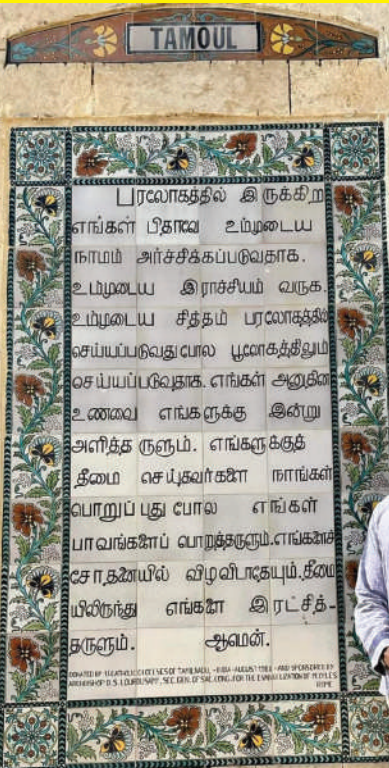 TAMOUL
பரலோகத்தில் இருக்கிற
எங்கள் பிதாவே உம்முடைய
நாமம் அர்ச்சிக்கப்படுவதாக.
உம்முடைய இராச்சியம் வருக.
உம்முடைய சித்தம் பரலோகத்தில்
செய்யப்படுவதுபோல பூலோகத்திலும்
செய்யப்படுவதாக. எங்கள் அனுதின
உணவை எங்களுக்கு இன்று
அளித்தருளும். எங்களுக்குத்
தீமை செய்தவர்களை நாங்கள்
பொறுப்புது போல எங்கள்
பாவங்களைப் பொறுத்தருளும்.எங்களைச்
சோதனையில் விழவிடாதேயும்.தீமை
யிலிருந்து எங்களை இரட்சித்-
தருளும். ஆமென்.
DONATED BY CATHOLIC DIOCESES OF TAMILNADU, - INDIA - AUGUST - AND SPONSORED BY
ARCHBISHOP D. S. LOURDUSAMY, SEC. GEN. OF SAC. CONG. FOR THE EVANGELIZATION OF PEOPLES
ROME